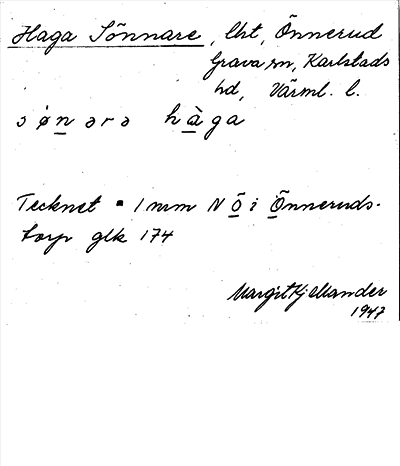 Haga Sönnare, lht, Önnerud
Grava sn, Karlstads
hd, Värml. l.
sønərə hàga
Tecknet ▪ 1 mm N Ö i Önneruds-
torp glk 174
Margit Kjellander
1947